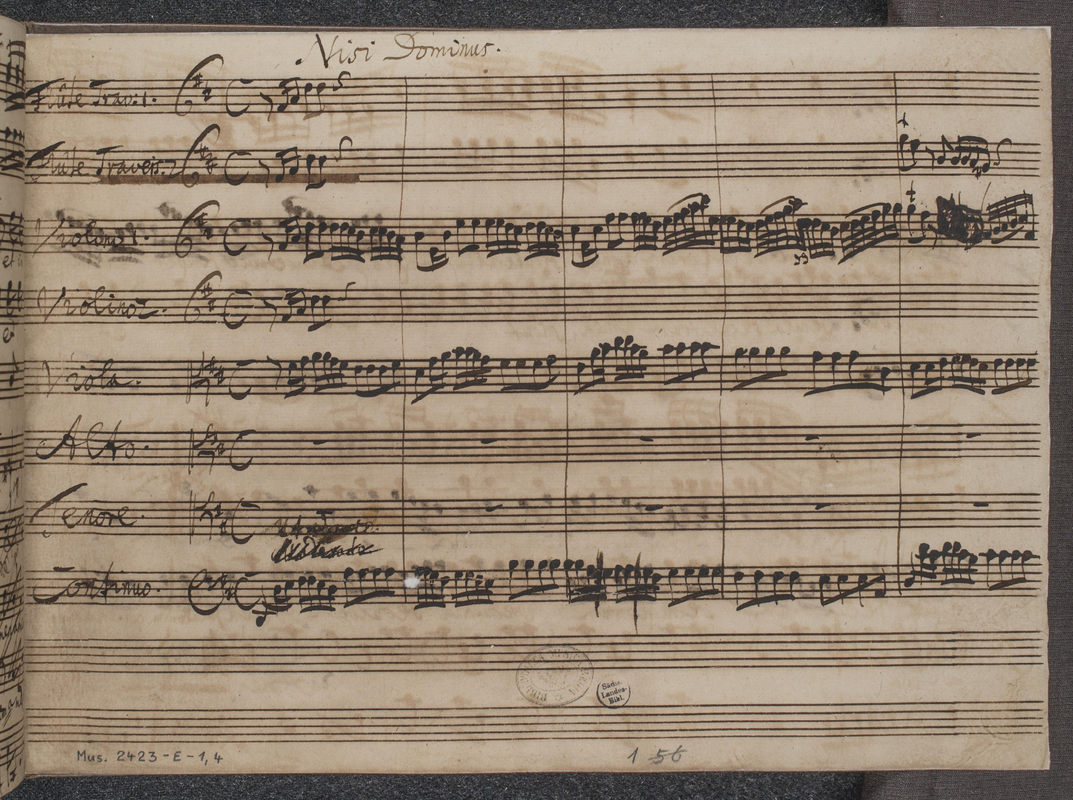 Nisi Dominus.
Flûte Trav: 1.
Flûte Travers. 2
Violino 1.
Violino 2.
Viola.
Alto.
Tenore.
Continuo.
Sächs.
Landes-
Bibl.
Mus. 2423-E-1,4
1 56